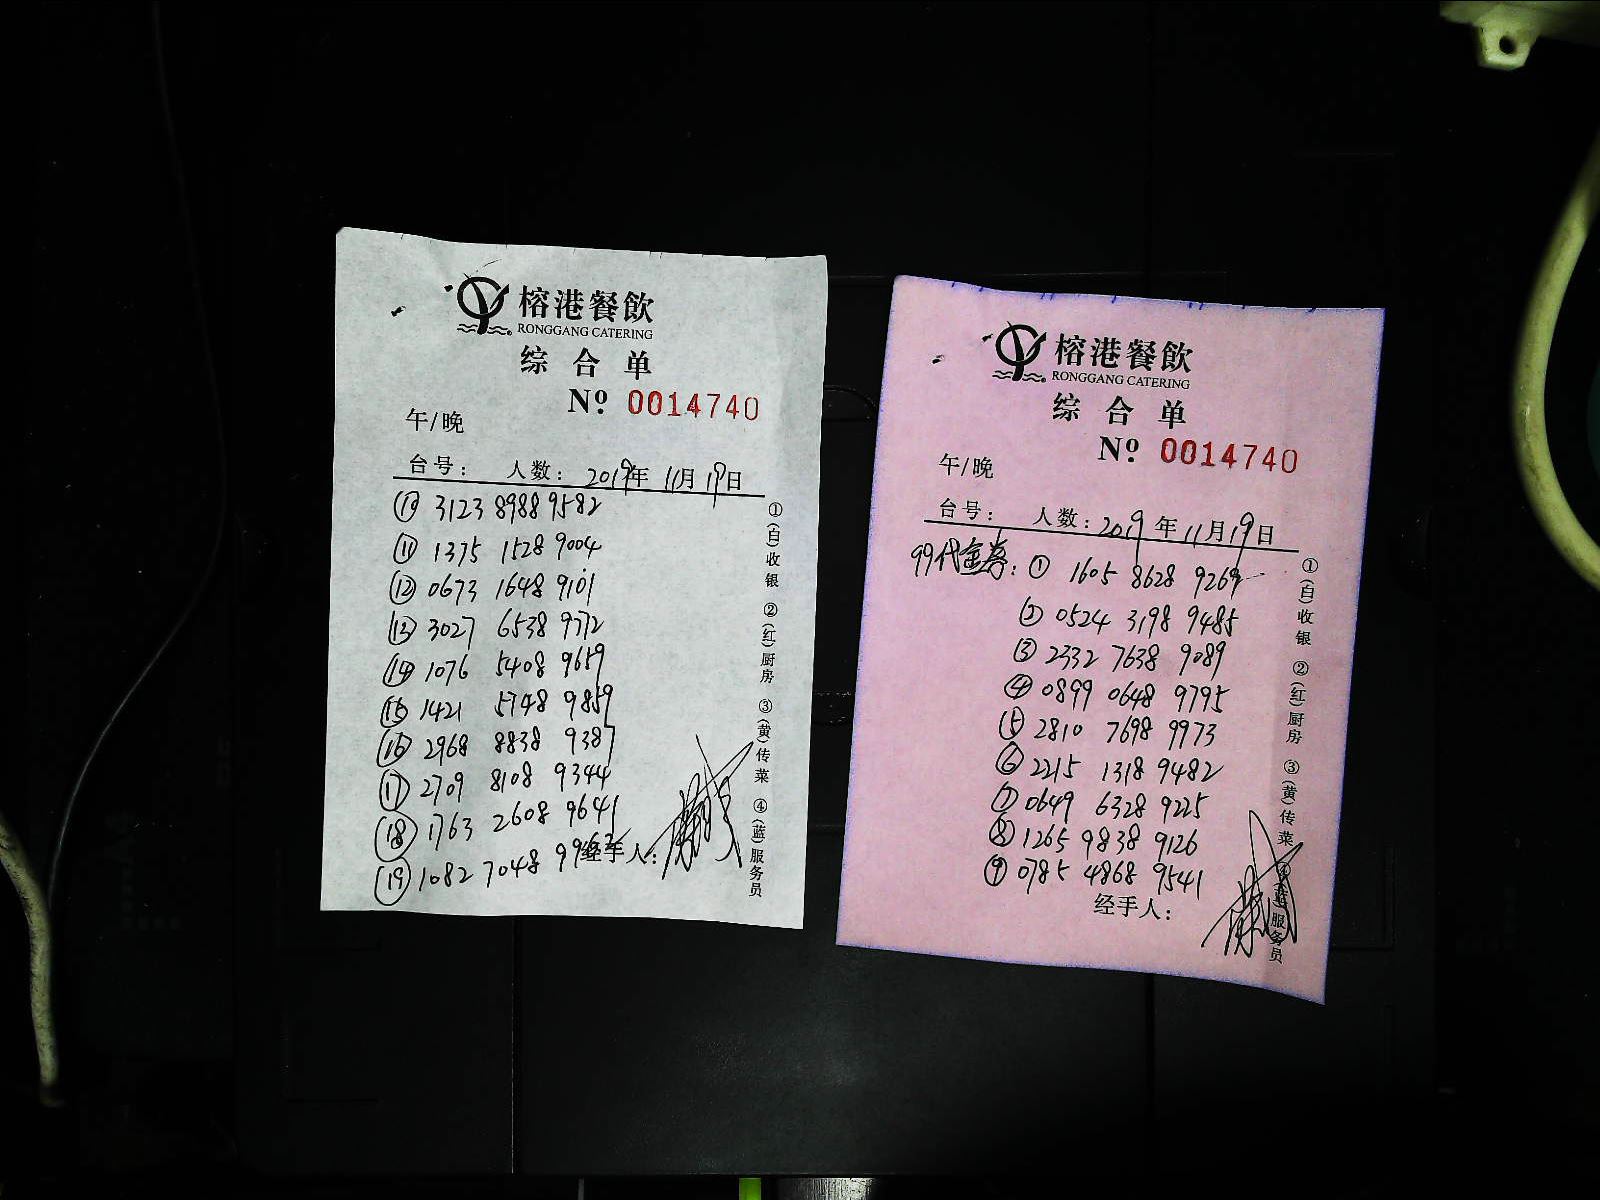 榕港餐飲
RONGGANG CATERING
综合单
Nº 0014740
午/晚
台号： 人数： 2019年 11月 19日
⑩ 3123 8988 9582
⑪ 1375 1528 9004
⑫ 0673 1648 9101
⑬ 3027 6538 9772
⑭ 1076 5408 9659
⑮ 1421 5748 9859
⑯ 2968 8838 9387
⑰ 2709 8108 9344
⑱ 1763 2608 9641
⑲ 1082 7048
经手人：
①(白)收银 ②(红)厨房 ③(黄)传菜 ④(蓝)服务员
榕港餐飲
RONGGANG CATERING
综合单
Nº 0014740
午/晚
台号： 人数： 2019年 11月 19日
99代金券： ① 1605 8628 9269
② 0524 3198 9485
③ 2332 7638 9089
④ 0899 0648 9795
⑤ 2810 7698 9973
⑥ 2215 1318 9482
⑦ 0649 6328 9225
⑧ 1265 9838 9126
⑨ 0785 4868 9541
经手人：
①(白)收银 ②(红)厨房 ③(黄)传菜 ④(蓝)服务员